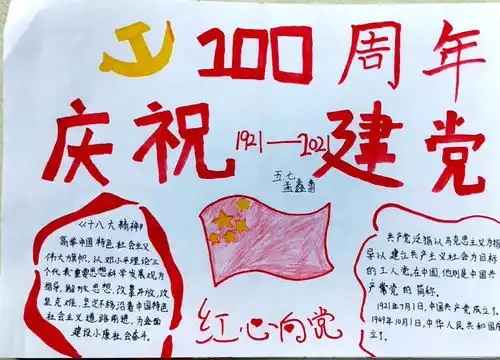 100周年
庆祝建党
1921—2021
五.七
孟鑫
《十八大精神》
高举中国特色社会主义
伟大旗帜,以邓小平理论三
个代表重要思想科学发展观为
指导,解放思想,改革开放,攻
坚克难,坚定不移沿着中国特色
社会主义道路前进,为全面
建设小康社会奋斗。
红心向党
共产党泛指以马克思主义为指
导以建立共产主义社会为目标
的工人党,在中国,他则是中国共
产党的简称。
1921年7月1日,中国共产党成立了。
1949年10月1日,中华人民共和国成
立了。